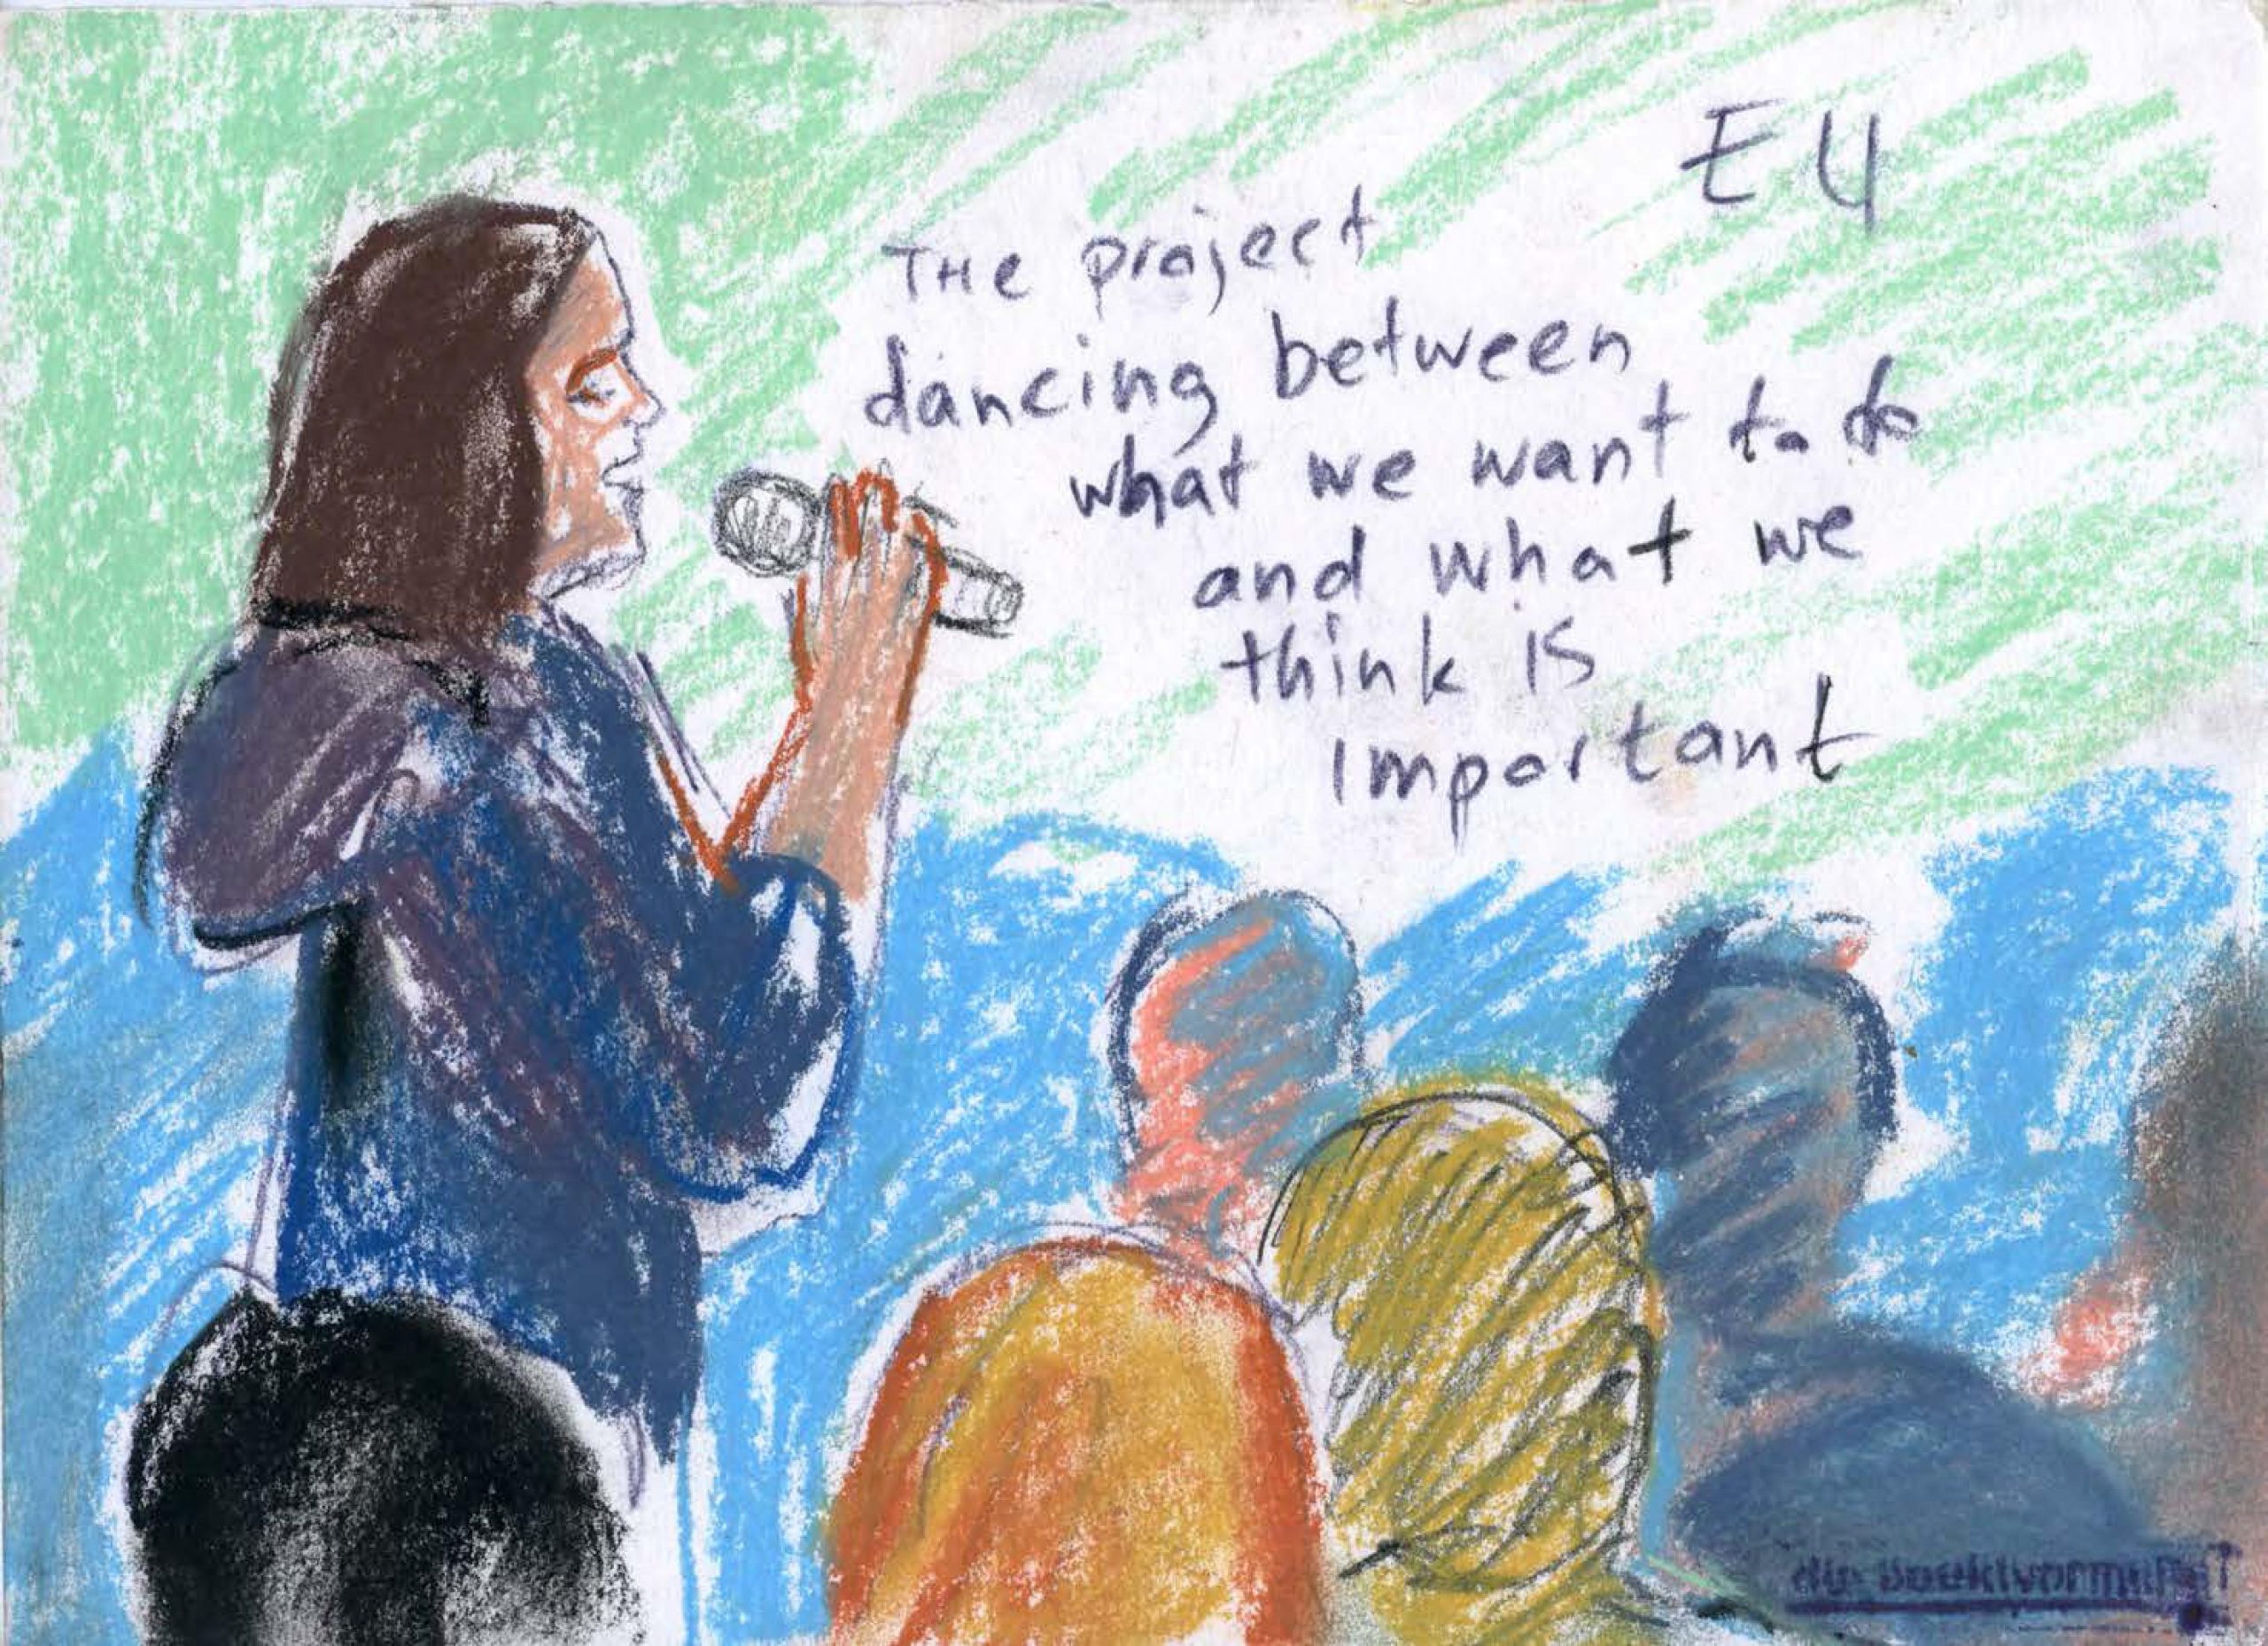 EU
THe project
dancing between
what we want to do
and what we
think is
important